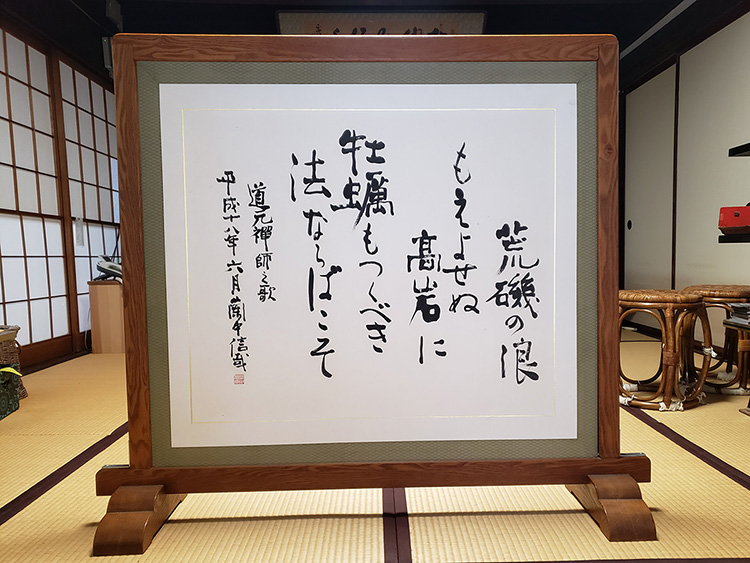 荒磯の浪
もえよせぬ
高岩に
牡蠣もつくべき
法ならばこそ
道元禅師之歌
平成十八年六月